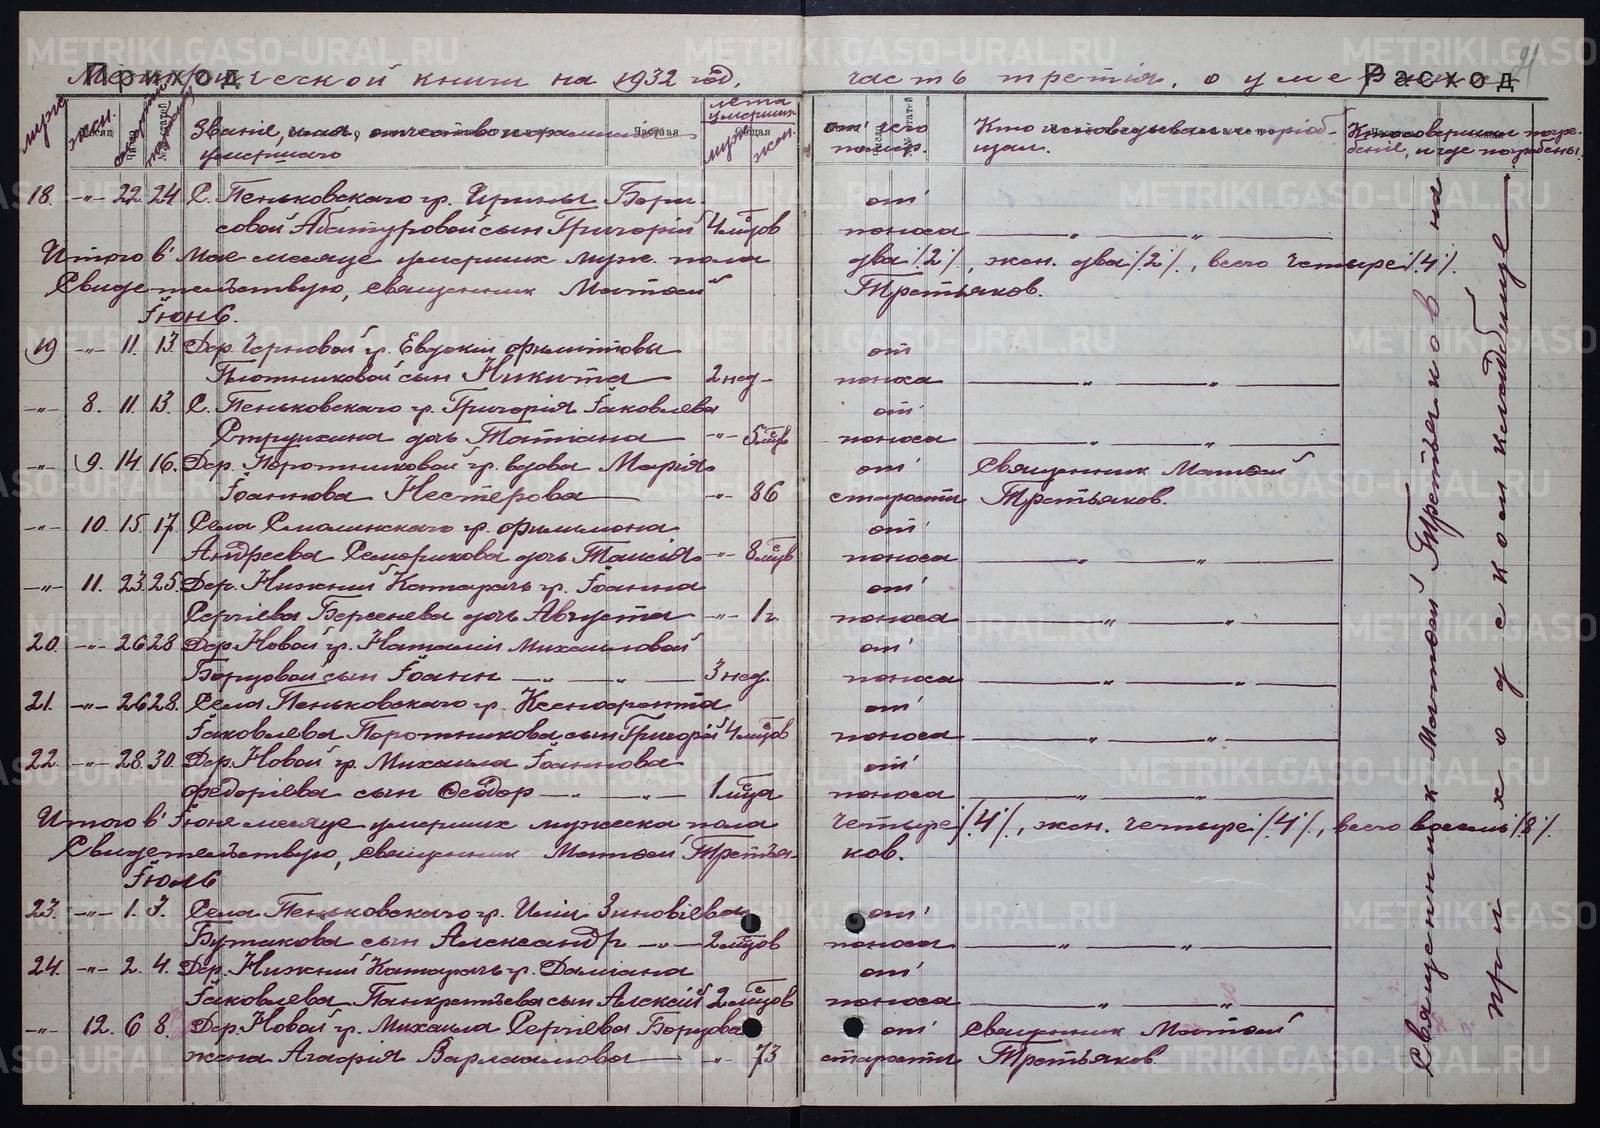 METRIKI.GASO-URAL.RU
Приход Расход
Метрической книги на 1932 год, часть третія, о умерших 91
муже. жен. смерти
Званіе, имя, отчество и фамилія умершаго
лета умерших
муж. жен.
от чего помер.
Кто исповедывал и пріобщал.
Кто совершал погребеніе, и где погребены.
18. -"- 22. 24 С. Пеньковскаго гр. Ирины Бори-
совой Абатуровой сын Григорій 4 м-цов от поноса
Итого в мае месяце умерших муж. пола два /2/, жен. два /2/, всего четыре /4/.
Свидетельствую, священник Матѳей Третьяков.
Іюнь.
19 -"- 11. 13 Дер. Черновой гр. Евдокіи Филиттовы
Плотниковой сын Никита 2 нед. от поноса
-"- 8. 11. 13. С. Пеньковскаго гр. Григорія Іаковлева
Стрункина дочь Татіана -"- 5 м-цев от поноса
-"- 9. 14. 16. Дер. Поротниковой гр. вдова Марія
Іоаннова Нестерова -"- 86 от старости Священник Матѳей Третьяков.
-"- 10. 15. 17. Села Смолинскаго гр. Филимона
Андреева Семерикова дочь Таисія -"- 8 м-цев от поноса
-"- 11. 23. 25. Дер. Нижний Катарач гр. Іоанна
Сергіева Берсенева дочь Августа -"- 1 г. от поноса
20. -"- 26 28 Дер. Новой гр. Наталіи Михайловой
Борцовой сын Іоанн 3 нед. от поноса
21. -"- 26 28. Села Пеньковскаго гр. Ксенофонта
Іаковлева Поротникова сын Григорій 4 м-цов от поноса
22. -"- 28. 30. Дер. Новой гр. Михаила Іоаннова
Федоріева сын Ѳеодор 1 м-ца от поноса
Итого в Іюне месяце умерших мужеска пола четыре /4/, жен. четыре /4/, всего восемь /8/.
Свидетельствую, священник Матѳей Третьяков.
Іюль
23. -"- 1. 3. Села Пеньковскаго гр. Иліи Зиновіева
Бутакова сын Александр 2 м-цов от поноса
24. -"- 2. 4. Дер. Нижний Катарач гр. Даміана
Іаковлева Панкратьева сын Алексій 2 м-цов от поноса
-"- 12. 6 8. Дер. Новой гр. Михаила Сергіева Борцова
жена Агафія Варлаамова -"- 73 от старости Священник Матѳей Третьяков.
Священник Матѳей Третьяков на
приходском кладбище